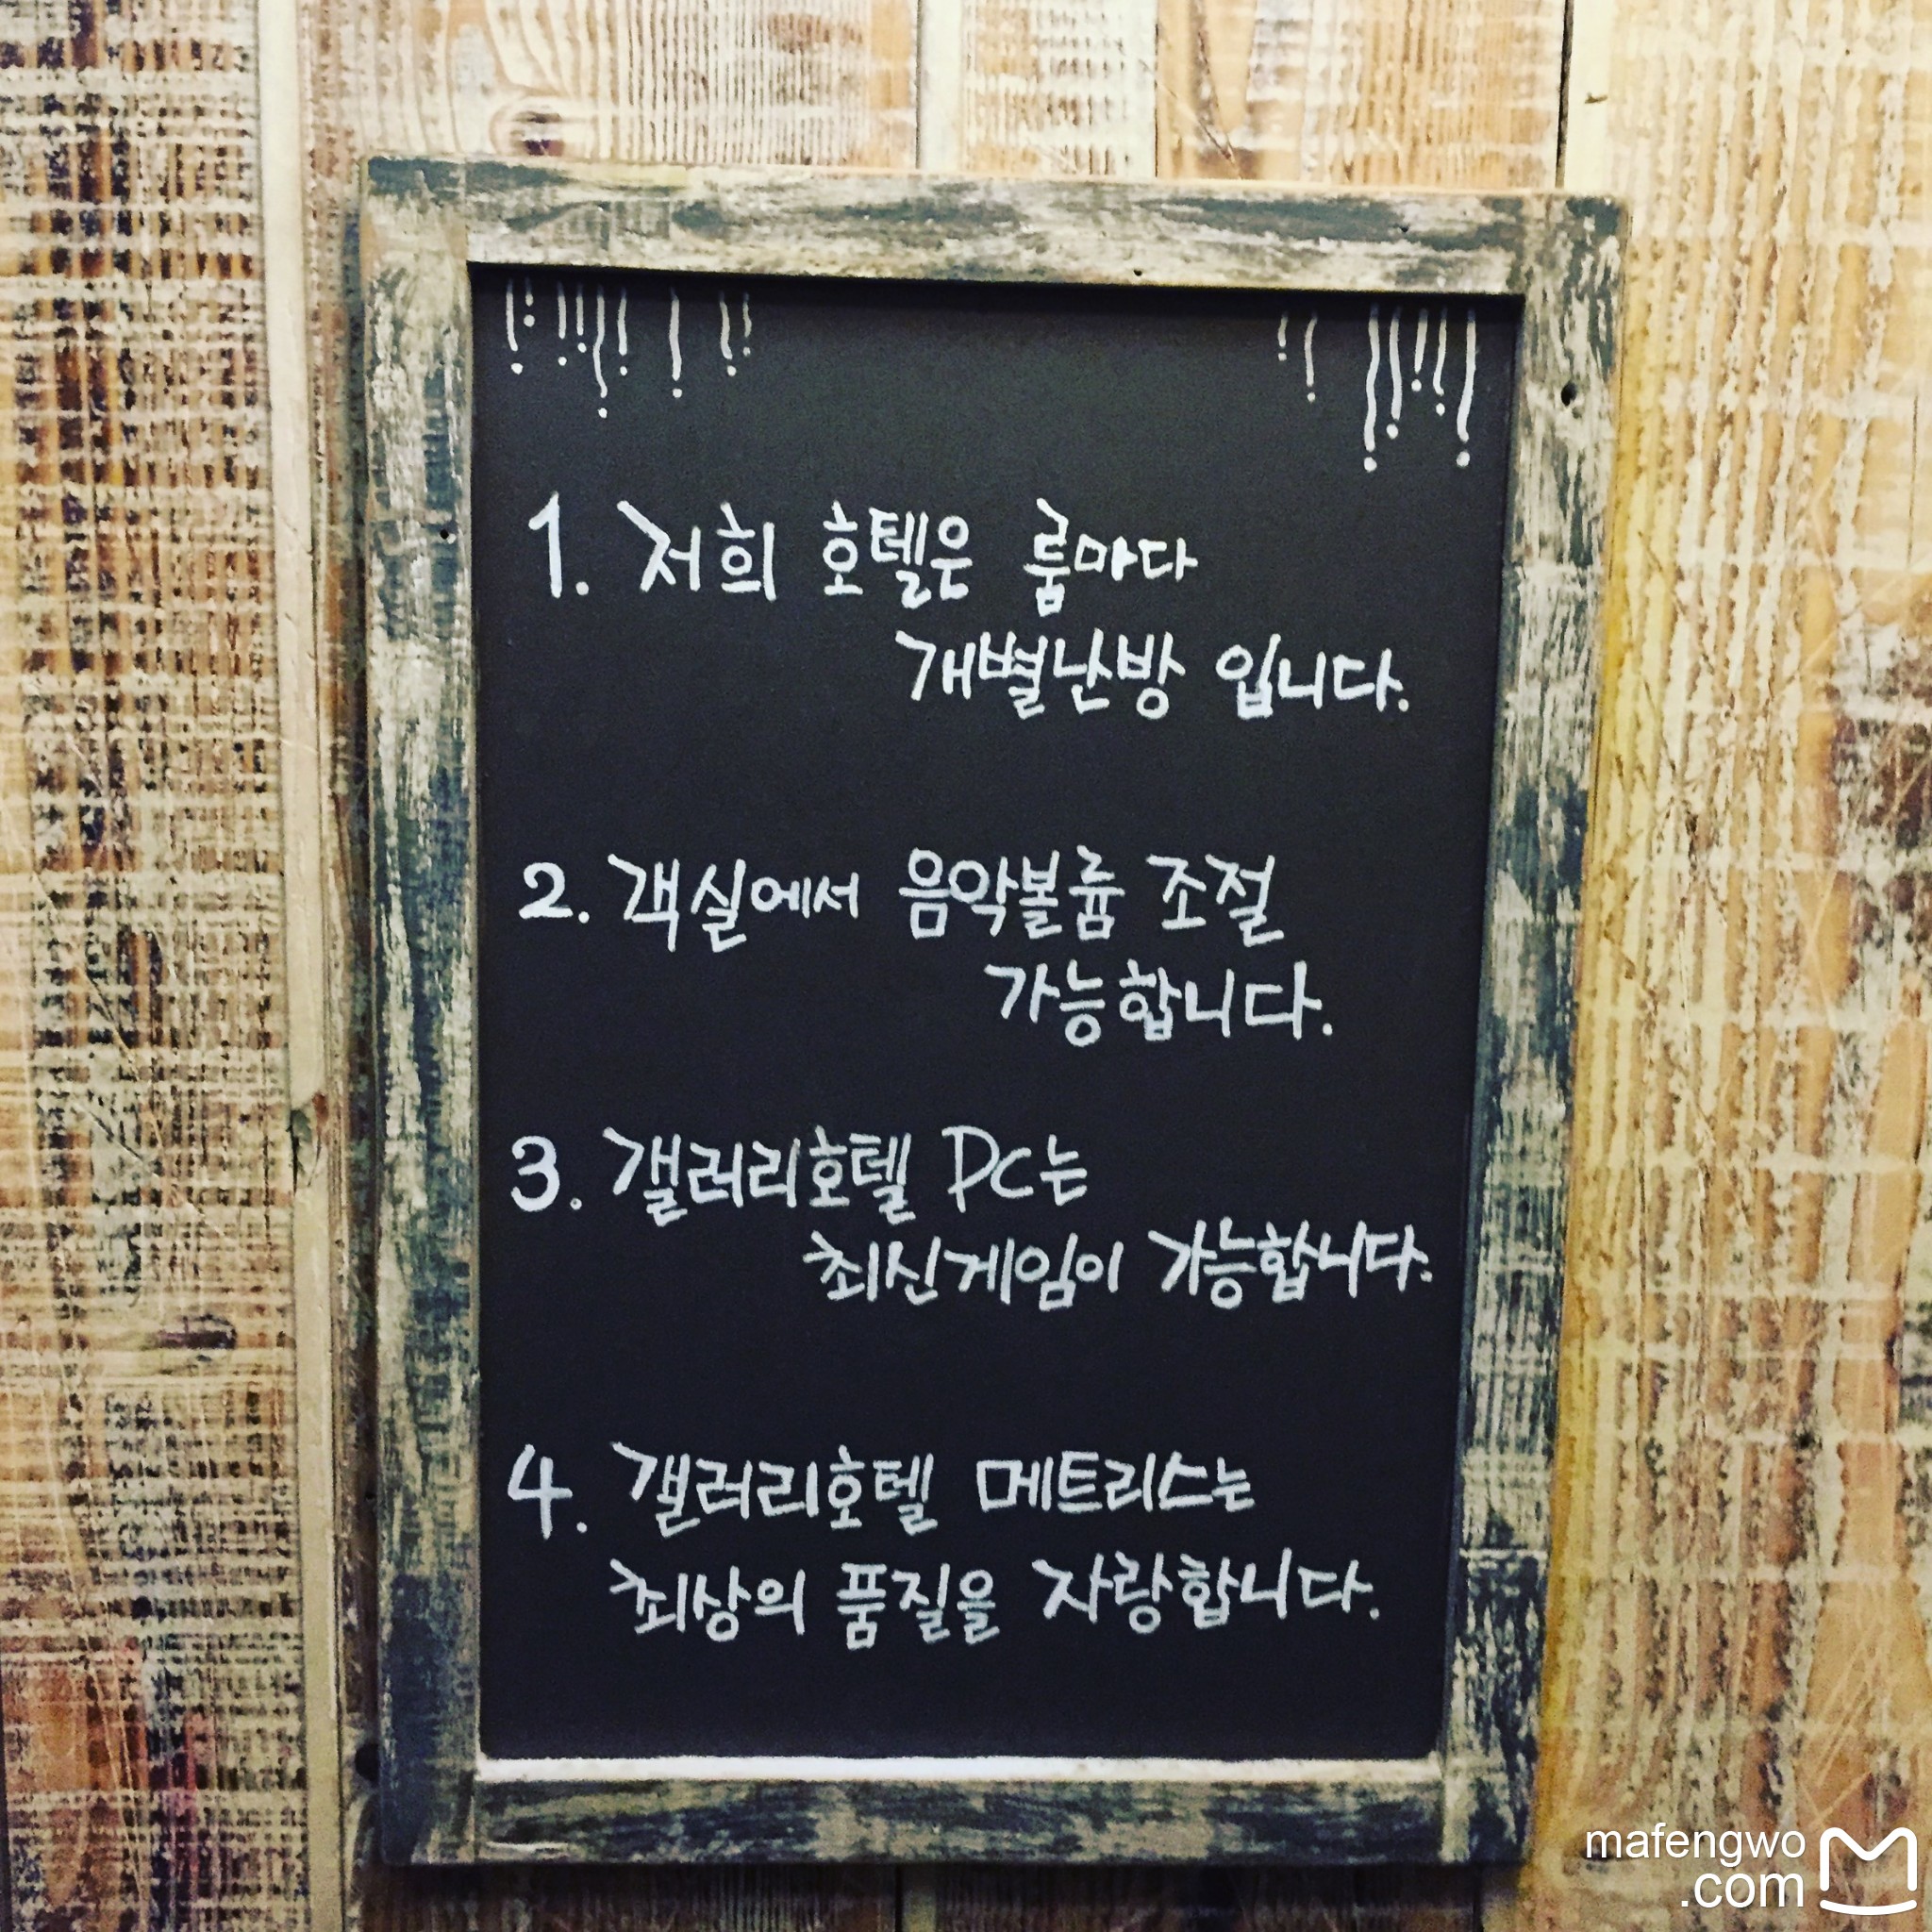 1. 저희 호텔은 룸마다
개별난방 입니다.
2. 객실에서 음악볼륨 조절
가능합니다.
3. 갤러리호텔 PC는
최신게임이 가능합니다.
4. 갤러리호텔 메트리스는
최상의 품질을 자랑합니다.
mafengwo
.com